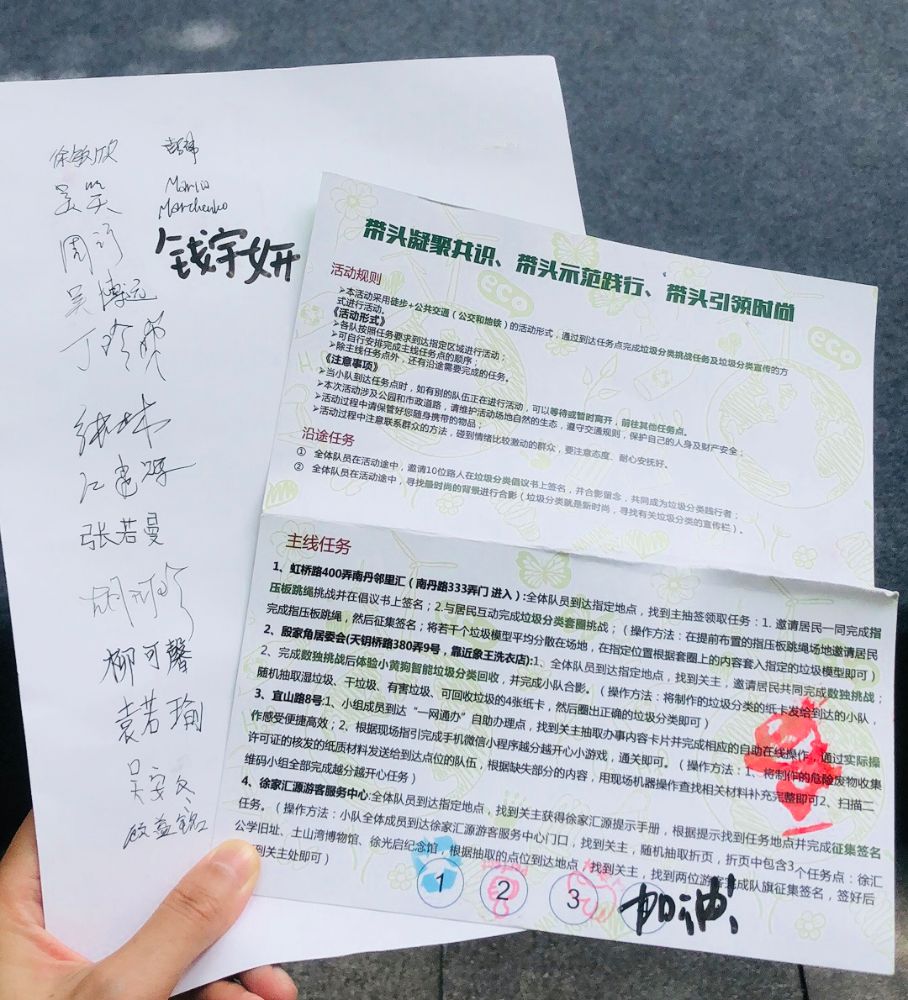 徐敏欣
吴笑
Mario
Marchenko
钱宇妍
吴博远
张若曼
柳可馨
袁若瑜
带头凝聚共识、带头示范践行、带头引领时尚
eco
活动规则
➢本活动采用徒步+公共交通（公交和地铁）的活动形式，通过到达任务点完成垃圾分类挑战任务及垃圾分类宣传的方
式进行活动。
《活动形式》
➢各队按照任务要求到达指定区域进行活动；
➢可自行安排完成主线任务点的顺序；
➢除主线任务点外，还有沿途需要完成的任务。
《注意事项》
➢当小队到达任务点时，如有别的队伍正在进行活动，可以等待或暂时离开，前往其他任务点。
➢本次活动涉及公园和市政道路，请维护活动场地自然的生态，遵守交通规则，保护自己的人身及财产安全；
➢活动过程中请保管好您随身携带的物品；
➢活动过程中注意联系群众的方法，碰到情绪比较激动的群众，要注意态度、耐心安抚好。
沿途任务
① 全体队员在活动途中，邀请10位路人在垃圾分类倡议书上签名，并合影留念，共同成为垃圾分类践行者；
② 全体队员在活动途中，寻找最时尚的背景进行合影（垃圾分类就是新时尚，寻找有关垃圾分类的宣传栏）。
主线任务
1、虹桥路400弄南丹邻里汇（南丹路333弄门 进入）:全体队员到达指定地点，找到主抽签领取任务：1. 邀请居民一同完成指
压板跳绳挑战并在倡议书上签名；2.与居民互动完成垃圾分类套圈挑战；（操作方法：在提前布置的指压板跳绳场地邀请居民
完成指压板跳绳，然后征集签名；将若干个垃圾模型平均分散在场地，在指定位置根据套圈上的内容套入指定的垃圾模型即可）
2、殷家角居委会(天钥桥路380弄9号，靠近象王洗衣店):1、全体队员到达指定地点，找到关主，邀请居民共同完成数独挑战；
2、完成数独挑战后体验小黄狗智能垃圾分类回收，并完成小队合影。（操作方法：将制作的垃圾分类的纸卡发给到达的小队，
随机抽取湿垃圾、干垃圾、有害垃圾、可回收垃圾的4张纸卡，然后圈出正确的垃圾分类即可）
3、宜山路8号:1、小组成员到达“一网通办”自助办理点，找到关主抽取办事内容卡片并完成相应的自助在线操作，通过实际操
作感受便捷高效；2、根据现场指引完成手机微信小程序越分越开心小游戏，通关即可。（操作方法：1、将制作的危险废物收集
许可证的核发的纸质材料发送给到达点位的队伍，根据缺失部分的内容，用现场机器操作查找相关材料补充完整即可2、扫描二
维码小组全部完成越分越开心任务）
4、徐家汇源游客服务中心:全体队员到达指定地点，找到关主获得徐家汇源提示手册，根据提示找到任务地点并完成征集签名
任务。（操作方法：小队全体成员到达徐家汇源游客服务中心门口，找到关主，随机抽取折页，折页中包含3个任务点：徐汇
公学旧址、土山湾博物馆、徐光启纪念馆，根据抽取的点位到达地点，找到关主，找到两位游客完成队旗征集签名，签好后
到关主处即可）
1 2 3
加油!